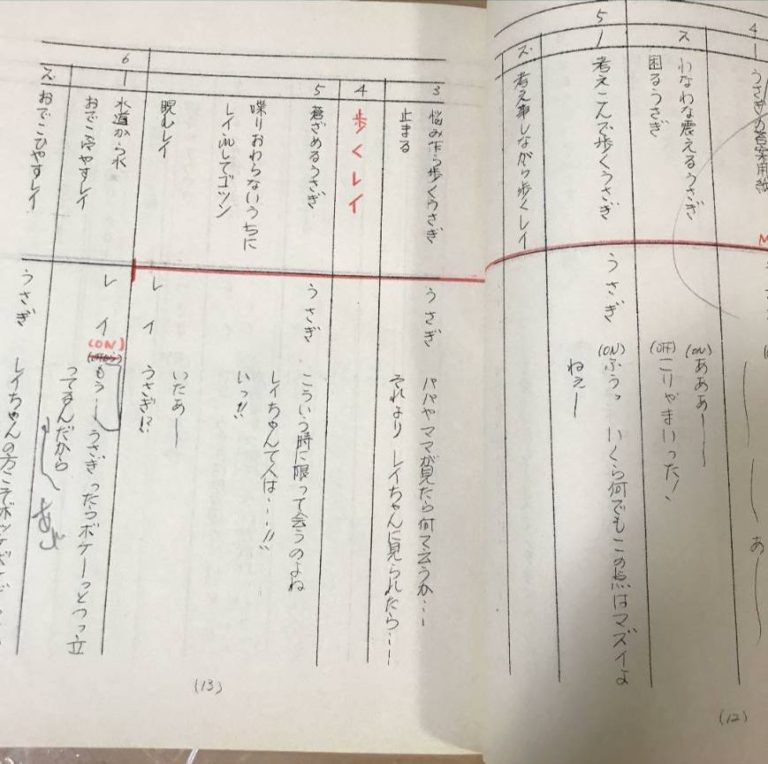 4
1 うさぎの答案用紙
あ——
ス わなわな震えるうさぎ
(ON) あああ——
困るうさぎ
(OFF) こりゃまいった!
5
1 考えこんで歩くうさぎ うさぎ (ON) ふうッ いくら何でもこの点はマズイよ
ねぇー
ズ 考え事しながら歩くレイ
(12)
3 悩み乍ら歩くうさぎ うさぎ パパやママが見たら何て云うか…
止まる それより レイちゃんに見られたら……
4 歩くレイ
5 蒼ざめるうさぎ うさぎ こういう時に限って会うのよね
レイちゃんて人は…!!
喋りおわらないうちに いっ!!
してゴツン
睨むレイ いたあー
レイ うさぎ!?
6
1 水道から水 レイ (ON) もう…うさぎったらボケーっとつっ立
おでこ冷やすレイ ってるんだから
ズ おでこひやすレイ うさぎ レイちゃんの方こそ
(13)